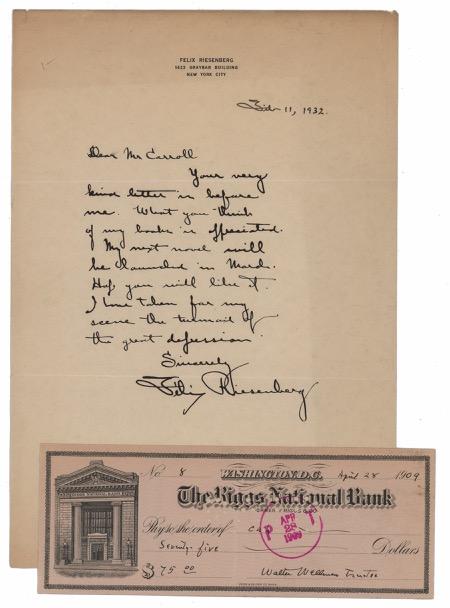 FELIX RIESENBERG
5623 GRAYBAR BUILDING
NEW YORK CITY
Feb 11, 1932.
Dear Mr Carroll
Your very
kind letter is before
me. What you think
of my books is appreciated.
My next novel will
be launched in March.
Hop you will like it.
I have taken for my
scene the turmoil of
the great depression
Sincerely
Felix Riesenberg
No 8 WASHINGTON, D.C. April 28 1909
The Riggs National Bank
Pay to the order of
APR
28
1909
Seventy-five Dollars
$ 75 00 Walter Wellman Trustee